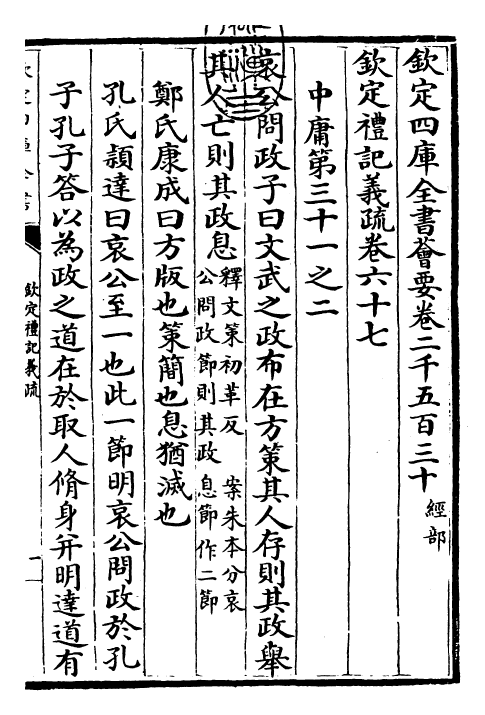 欽定四庫全書薈要卷二千五百三十 經部
欽定禮記義疏卷六十七
中庸第三十一之二
哀公問政子曰文武之政布在方策其人存則其政舉
其人亡則其政息
釋文策初革反 案朱本分哀
公問政節則其政 息節作二節
鄭氏康成曰方版也策簡也息猶滅也
孔氏穎達曰哀公至一也此一節明哀公問政於孔
子孔子答以為政之道在於取人脩身并明達道有
欽定禮記義疏
一